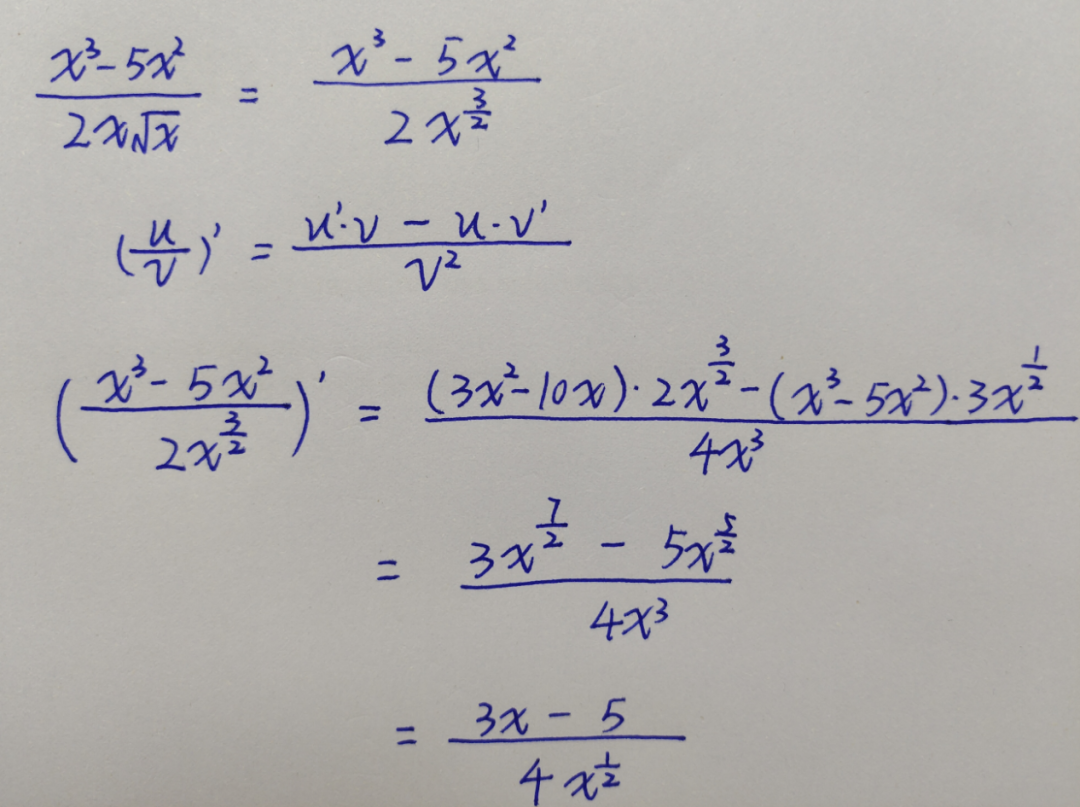 \frac{x^3 - 5x^2}{2x\sqrt{x}} = \frac{x^3 - 5x^2}{2x^{\frac{3}{2}}}
(\frac{u}{v})' = \frac{u' \cdot v - u \cdot v'}{v^2}
\left(\frac{x^3 - 5x^2}{2x^{\frac{3}{2}}}\right)' = \frac{(3x^2 - 10x) \cdot 2x^{\frac{3}{2}} - (x^3 - 5x^2) \cdot 3x^{\frac{1}{2}}}{4x^3}
= \frac{3x^{\frac{7}{2}} - 5x^{\frac{5}{2}}}{4x^3}
= \frac{3x - 5}{4x^{\frac{1}{2}}}